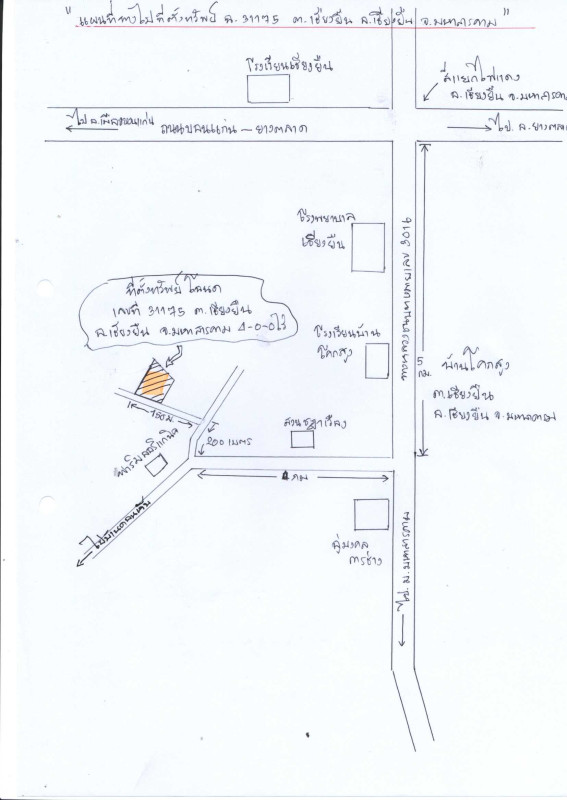 "แผนที่ทางไปที่ตั้งทรัพย์ ฉ.31175 ต.เชียงยืน อ.เชียงยืน จ.มหาสารคาม"
โรงเรียนเชียงยืน
สี่แยกไฟแดง
อ.เชียงยืน จ.มหาสารคาม
ไป อ.เมืองขอนแก่น
ถนนขอนแก่น - ยางตลาด
ไป อ.ยางตลาด
โรงพยาบาล
เชียงยืน
ที่ตั้งทรัพย์ โฉนด
เลขที่ 31175 ต.เชียงยืน
อ.เชียงยืน จ.มหาสารคาม 4-0-0 ไร่
โรงเรียนบ้าน
โคกสูง
5
กม.
บ้านโคกสูง
ต.เชียงยืน
อ.เชียงยืน จ.มหาสารคาม
150 ม.
200 เมตร
1 กม
อู่มงคล
การช่าง